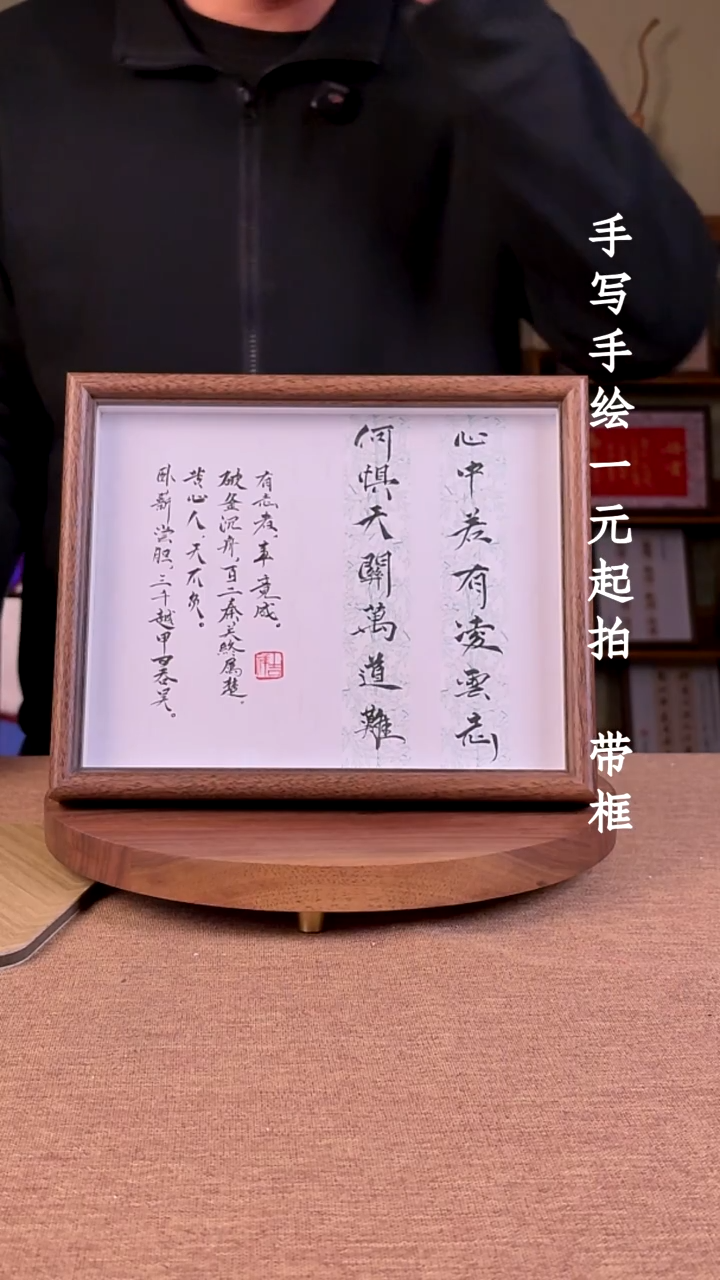 手写手绘一元起拍 带框
心中若有凌雲志
何惧天關萬道難
有志者，事竟成。
破釜沉舟，百二秦关终属楚，
苦心人，天不负。
卧薪尝胆，三千越甲可吞吴。